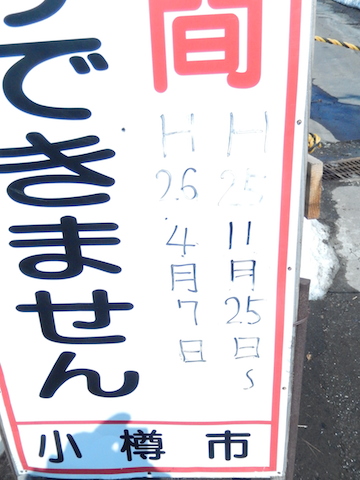 間
H25 11月25日~
H26 4月7日
できません
小樽市